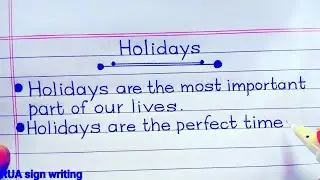 Holidays
Holidays are the most important
part of our lives.
Holidays are the perfect time
RUA sign writing